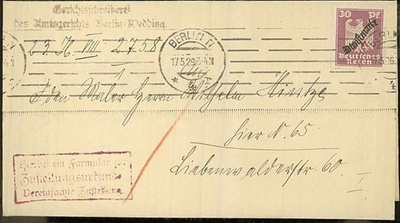 Gerichtsschreiberei
des Amtsgerichts Berlin-Wedding.
BERLIN N
17.5.26
30 Pf
Dienstmarke
DEUTSCHES
REICH
An den Maler Herrn Wilhelm Hintze
hier N. 65
Liebenwalderstr. 60. I
Hierbei ein Formular zur
Zustellungsurkunde
Vereinfachte Zustellung.